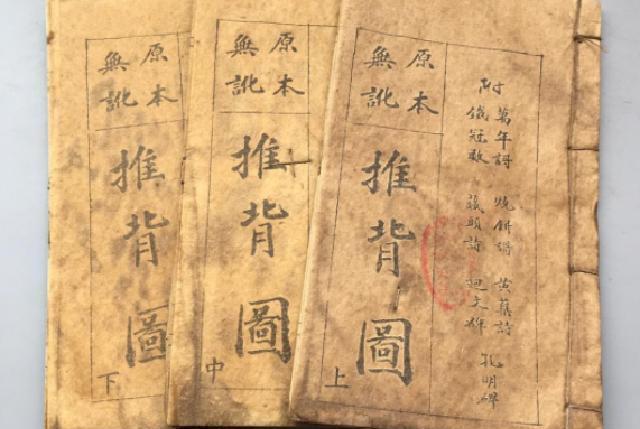 原本
無訛
推背圖
下
原本
無訛
推背圖
中
附
萬年詩 燒餅謌 黃蘗詩
鐵冠敖 藏頭詩 迴文碑 孔明碑
原本
無訛
推背圖
上